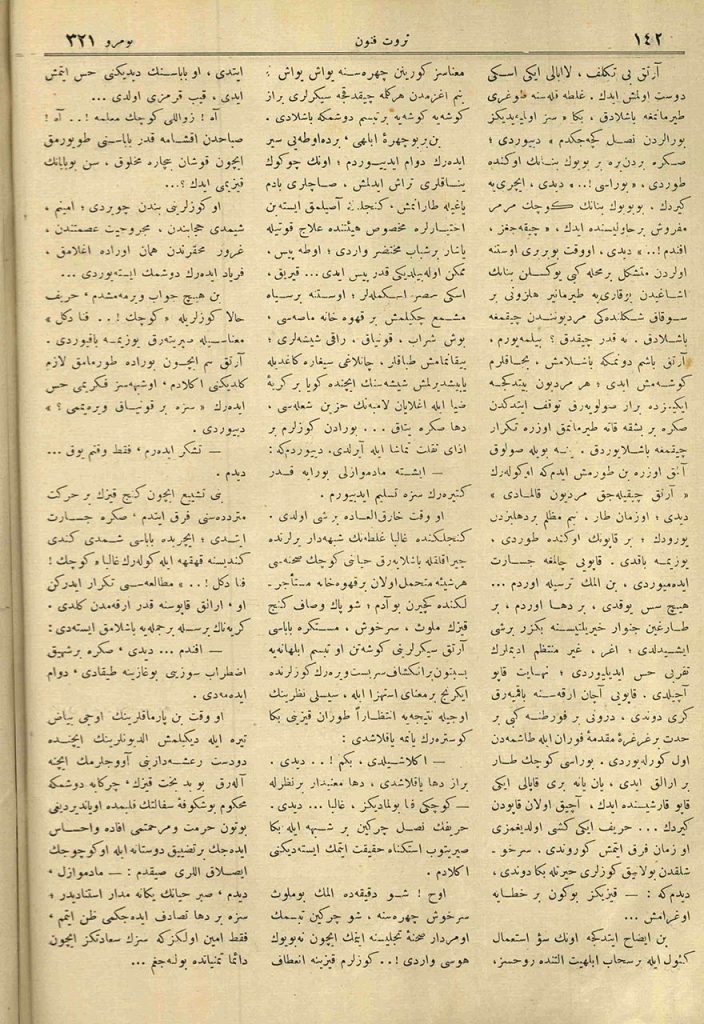 ١٤٢
ثروت فنون
نومرو ٣٢١
آرتق بی تكلف ، لاابالی ایكی اسكی
دوست اولمش ایدك . غلطه قله‌سنه طوغری
طیرمانمغه باشلادق ، بكا « سز اولیه‌یدیكز
بورالردن نصل كچه‌جكدم » دییوردی ؛
صكره بردن‌بره بر بویوك بنانك اوكنده
طوردی ، « بوراسی !.. » دیدی ، ایچری‌یه
كیردك . بوبویوك بنانك كوچك مرمر
مفروش بر حاولیسنده ایدك ، « چیقه‌جغز ،
افندم !.. » دیدی ، اووقت بربری اوستنه
اولردن متشكل بر محله كبی یوكسلن بنانك
اشاغیدن یوقاری‌یه طیرمانیر هلزونی بر
سوقاق شكلنده‌كی مردیوننندن چیقمغه
باشلادق . نه قدر چیقدق ؟ بیلمه‌یورم ،
آرتق باشم دونمكه باشلامش ، بجاقلرم
كوشه‌مش ایدی ؛ هر مردیون بیتدكجه
ایكیمزده برار صولویه‌رق توقف ایتدكدن
صكره بر بشقه قاته طیرمانمق اوزره تكرار
چیقمغه باشلایوردق . ینه بویله صولوق
آلمق اوزره بن طورمش ایدم‌كه اوكوله‌رك
« آرتق چیقیله‌جق مردیون قالمادی »
دیدی ؛ اوزمان طار ، نیم مظلم بردهلیزدن
یورودك ؛ بر قاپونك اوكنده طوردی ،
یوزیمه باقدی . قاپویی چالمغه جسارت
ایده‌میوردی ، بن المك ترسیله اوردم ...
هیچ سس یوقدی ، بر دها اوردم ، بر
طارغین جنوار خیریلتیسنه بكزر برشی
ایشیدلدی ؛ اغر ، غیر منتظم آدیملرك
تقربی حس ایدیلیوردی ؛ نهایت قاپو
آچیلدی . قاپویی آچان ارقه‌سنه باقمیه‌رق
كری دوندی ، درونی بر فورطنه كبی بر
حدت بر غرغره مقدمۀ فوران ایله طاشمه‌دن
اول كورله‌یوردی . بوراسی كوچك طار
بر ارالق ایدی ، یان یانه بری قاپالی ایكی
قاپو قارشیسنده ایدك ، آچیق اولان قاپودن
كیردك ... حریف ایكی كشی اولدیغمزی
او زمان فرق ایتمش كوروندی . سرخو ـ
شلقدن بولانیق كوزلری حیرتله بكا دوندی ،
دیدم‌كه : — قیزیكز بوكون بر خطایه
اوغرامش ...
بن ایضاح ایتدكجه اونك سؤ استعمال
كئول ایله بر سحاب ابلهیت التنده روحسز،
معناسز كورینن چهره‌سنه یواش یواش :
بنم اغزمدن هركله چیقدقجه سیكرلری براز
كوشه‌یه كوشه‌یه بر تبسم دوشمكه باشلادی .
بن بو چهرۀ ابلهی ، برده‌اوطه‌یی سیر
ایده‌رك دوام ایدییوردم ؛ اونك چوكوك
یناقلری تراش ایدلمش ، صاچلری بادم
یاغیله طارانمش ، كنجلكه آصیلمق ایسته‌ین
اختیارلره مخصوص هیئتنده علاج قوتیله
یاشار بر شباب محتضر واردی ؛ اوطه پیس ،
ممكن اوله‌بیلدیكی قدر پیس ایدی ... قیریق ،
اسكی حصیر اسكمله‌لر ؛ اوستنه بر سیاه
مشمع چكیلمش بر قهوه خانه ماصه‌سی ،
بوش شراب ، قونیاق ، راقی شیشه‌لری ؛
ییقانمامش طباقلر ، چانلاغی سیغاره كاغدیله
یاپیشدیرلمش شیشه‌سنك ایچنده كویا بر كریۀ
ضیا ایله اغلایان لامبه‌نك حزین شعله‌سی ،
دها صكره یتاق ... بورادن كوزلرم بر
اذای ثقلت تماشا ایله آیرلدی. دییوردم‌كه :
— ایشته مادموازلی بورایه قدر
كتیره‌رك سزه تسلیم ایدییورم .
او وقت خارق‌العاده بر شی اولدی .
كنجلكنده غالبا غلطه‌نك شبهه‌دار یرلرنده
چیراقلقله باشلایه‌رق حیاتی كوچك صحنه‌یی
هرشیئه متحمل اولان بر قهوه‌خانه مستأجر ـ
لكنده كچیرن بو آدم ؛ شو پاك وصاف كنج
قیزك ملوث ، سرخوش ، مستكره باباسی
آرتق سیكرلرینی كوشه‌تن او تبسم ابلهانه‌یه
بسبتون بر انكشاف سربست ویره‌رك كوزلرنده
ایكرنج بر معنای استهزا ایله ، سیسلی نظرینك
اوجیله نتیجه‌یه انتظاراً طوران قیزینی بكا
كوستره‌رك یانمه یاقلاشدی :
— اكلاشیلدی ، بكم !.. دیدی .
براز دها یاقلاشدی ، دها معنیدار بر نظرله
— كوچكی فنا بولمادیكز ، غالبا ... دیدی .
حریفك نصل چركین بر شبهه ایله بكا
صیریتوب استكناه حقیقت ایتمك ایسته‌دیكنی
اكلادم .
اوح ! شو دقیقه‌ده المك بوملوث
سرخوش چهره‌سنه ، شو چركین تبسمك
اومردار صحنۀ تجلیسنه ایتمك ایچون نه‌بویوك
هوسی واردی !.. كوزلرم قیزینه انعطاف
ایتدی ، او باباسنك دیدیكنی حس ایتمش
ایدی ، قیپ قرمزی اولدی ...
آه ! زواللی كوچك معلمه !.. آه !
صباحدن اقشامه قدر باباسنی طویورمق
ایچون قوشان بیچاره مخلوق ، سن بوبابانك
قیزیمی ایدك ؟...
او كوزلرینی بندن چویردی ؛ امینم ،
شیمدی حجابندن ، مجروحیت عصمتندن ،
غرور محقرندن همان اوراده اغلامق ،
فریاد ایده‌رك دوشمك ایسته‌یوردی ...
بن هیچ جواب ویرمه‌مشدم ، حریف
حالا كوزلریله « كوچك !.. فنا دكل »
معناسیله صیریته‌رق یوزیمه باقیوردی .
آرتق بنم ایچون بوراده طورمامق لازم
كلدیكنی اكلادم ، اوشبهه‌سز فكریمی حس
ایده‌رك « سزه بر قونیاق ویره‌یم‌می ؟ »
دییوردی .
— تشكر ایدرم ، فقط وقتم یوق ...
دیدم .
بی تشییع ایچون كنج قیزك بر حركت
مترددسنی فرق ایتدم ، صكره جسارت
ایتدی ؛ ایچریده باباسی شمدی كندی
كندیسنه قهقهه ایله كوله‌رك غالبا « كوچك !
فنا دكل !.. » مطالعه‌سنی تكرار ایدركن
او ، ارالق قاپوسنه قدر ارقه‌مدن كلدی .
كریه‌ناك بر سسله بر جمله‌یه باشلامق ایسته‌دی :
— افندم ... دیدی ، صكره بر شهیق
اضطراب سوزینی بوغازینه طیقادی ، دوام
ایده‌مه‌دی .
او وقت بن پارماقلرینك اوجی بیاض
تیره ایله دیكیلمش الدیونلرینك ایچنده
دودست رعشه‌دارینی آووجلرمك ایچنه
آله‌رق بو بد بخت قیزك ، چركابه دوشمكه
محكوم بوشكوفۀ سفالتك قلبمده اویاندیردیغی
بوتون حرمت ومرحمتمی افاده واحساس
ایده‌جك بر تضییق دوستانه ایله اوكوچوجك
ایصلاق اللری صیقدم : — مادموازل ،
دیدم ، صبر حیاتك یكانه مدار استنادیدر ؛
سزه بر دها تصادف ایده‌جكمی ظن ایتمم ،
فقط امین اولكزكه سزك سعادتكز ایچون
دائما تمنیانده بولنه‌جغم ...